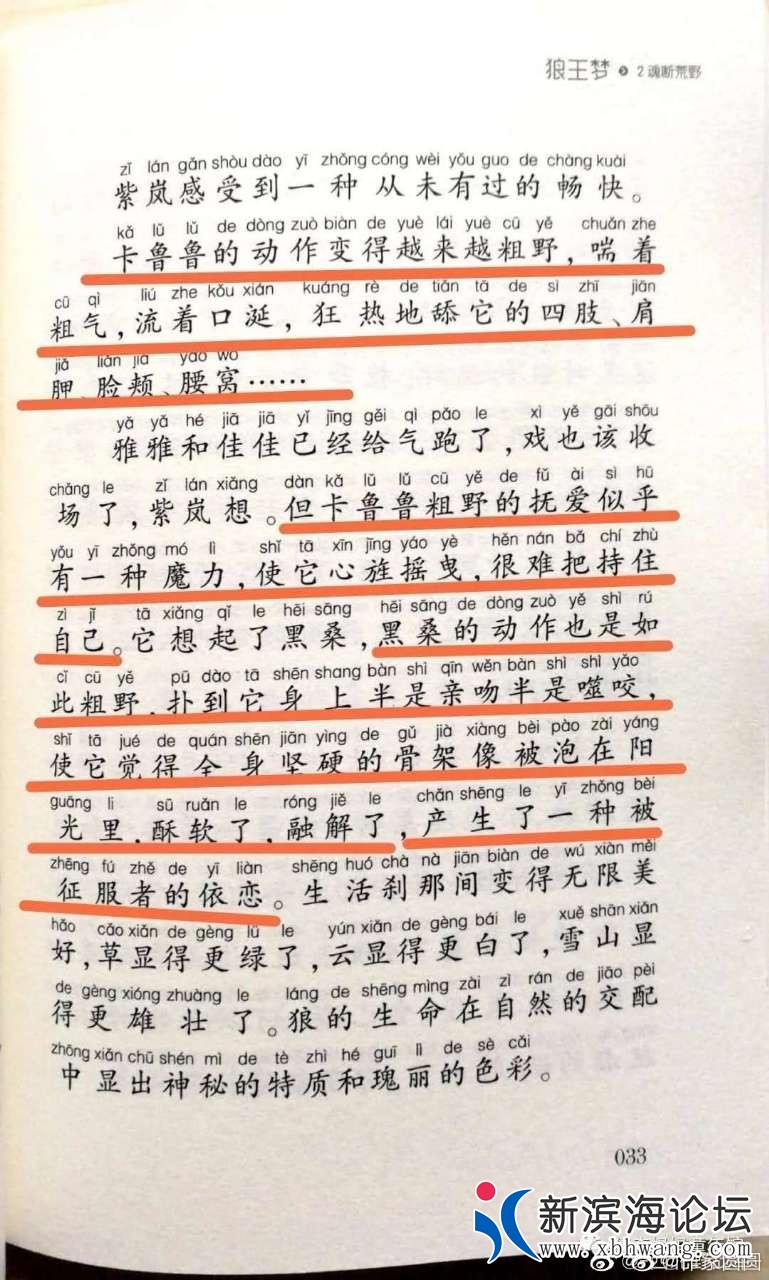 狼王梦 2 魂断荒野
zǐ lán gǎn shòu dào yī zhǒng cóng wèi yǒu guo de chàng kuài
紫岚感受到一种从未有过的畅快。
kǎ lǔ lǔ de dòng zuò biàn de yuè lái yuè cū yě chuǎn zhe
卡鲁鲁的动作变得越来越粗野，喘着
cū qì liú zhe kǒu xián kuáng rè de tiǎn tā de sì zhī jiān
粗气，流着口涎，狂热地舔它的四肢、肩
jiǎ liǎn jiá yāo wō
胛、脸颊、腰窝……
yǎ yǎ hé jiā jiā yǐ jīng gěi qì pǎo le xì yě gāi shōu
雅雅和佳佳已经给气跑了，戏也该收
chǎng le zǐ lán xiǎng dàn kǎ lǔ lǔ cū yě de fǔ ài sì hū
场了，紫岚想。但卡鲁鲁粗野的抚爱似乎
yǒu yī zhǒng mó lì shǐ tā xīn jīng yáo yè hěn nán bǎ chí zhù
有一种魔力，使它心旌摇曳，很难把持住
zì jǐ tā xiǎng qǐ le hēi sāng hēi sāng de dòng zuò yě shì rú
自己。它想起了黑桑，黑桑的动作也是如
cǐ cū yě pū dào tā shēn shang bàn shì qīn wěn bàn shì shì yǎo
此粗野，扑到它身上半是亲吻半是噬咬，
shǐ tā jué de quán shēn jiān yìng de gǔ jià xiàng bèi pào zài yáng
使它觉得全身坚硬的骨架像被泡在阳
guāng li sū ruǎn le róng jiě le chǎn shēng le yī zhǒng bèi
光里，酥软了，融解了，产生了一种被
zhēng fú zhě de yī liàn shēng huó chà nà jiān biàn de wú xiàn měi
征服者的依恋。生活刹那间变得无限美
hǎo cǎo xiǎn de gèng lǜ le yún xiǎn de gèng bái le xuě shān xiǎn
好，草显得更绿了，云显得更白了，雪山显
de gèng xióng zhuàng le láng de shēng mìng zài zì rán de jiāo pèi
得更雄壮了。狼的生命在自然的交配
zhōng xiǎn chū shén mì de tè zhì hé guī lì de sè cǎi
中显出神秘的特质和瑰丽的色彩。
033
新滨海论坛
www.xbhwang.com